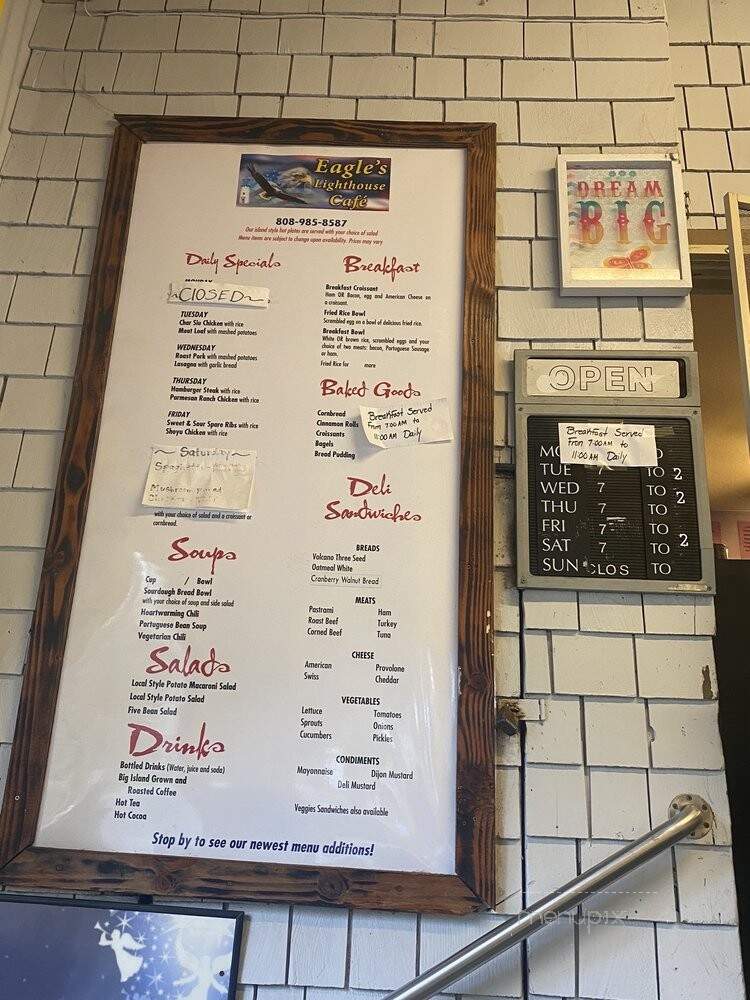 Eagle's
Lighthouse
Café
808-985-8587
Our island style hot plates are served with your choice of salad
Menu items are subject to change upon availability. Prices may vary
Daily Specials
MONDAY
~CLOSED~
TUESDAY
Char Siu Chicken with rice
Meat Loaf with mashed potatoes
WEDNESDAY
Roast Pork with mashed potatoes
Lasagna with garlic bread
THURSDAY
Hamburger Steak with rice
Parmesan Ranch Chicken with rice
FRIDAY
Sweet & Sour Spare Ribs with rice
Shoyu Chicken with rice
~ Saturday ~
Spaghetti
Mushroom
with your choice of salad and a croissant or
cornbread.
Soups
Cup / Bowl
Sourdough Bread Bowl
with your choice of soup and side salad
Heartwarming Chili
Portuguese Bean Soup
Vegetarian Chili
Salads
Local Style Potato Macaroni Salad
Local Style Potato Salad
Five Bean Salad
Drinks
Bottled Drinks (Water, juice and soda)
Big Island Grown and
Roasted Coffee
Hot Tea
Hot Cocoa
Breakfast
Breakfast Croissant
Ham OR Bacon, egg and American Cheese on
a croissant.
Fried Rice Bowl
Scrambled egg on a bowl of delicious fried rice.
Breakfast Bowl
White OR brown rice, scrambled eggs and your
choice of two meats: bacon, Portuguese Sausage
or ham.
Fried Rice for more
Baked Goods
Cornbread
Cinnamon Rolls
Croissants
Bagels
Bread Pudding
Breakfast Served
From 7:00 AM to
11:00 AM Daily
Deli
Sandwiches
BREADS
Volcano Three Seed
Oatmeal White
Cranberry Walnut Bread
MEATS
Pastrami Ham
Roast Beef Turkey
Corned Beef Tuna
CHEESE
American Provolone
Swiss Cheddar
VEGETABLES
Lettuce Tomatoes
Sprouts Onions
Cucumbers Pickles
CONDIMENTS
Mayonnaise Dijon Mustard
Deli Mustard
Veggies Sandwiches also available
Stop by to see our newest menu additions!
DREAM
BIG
OPEN
Breakfast Served
From 7:00 AM to
11:00 AM Daily
MO
TUE 7 TO 2
WED 7 TO 2
THU 7 TO
FRI 7 TO
SAT 7 TO 2
SUN CLOS TO
menupix